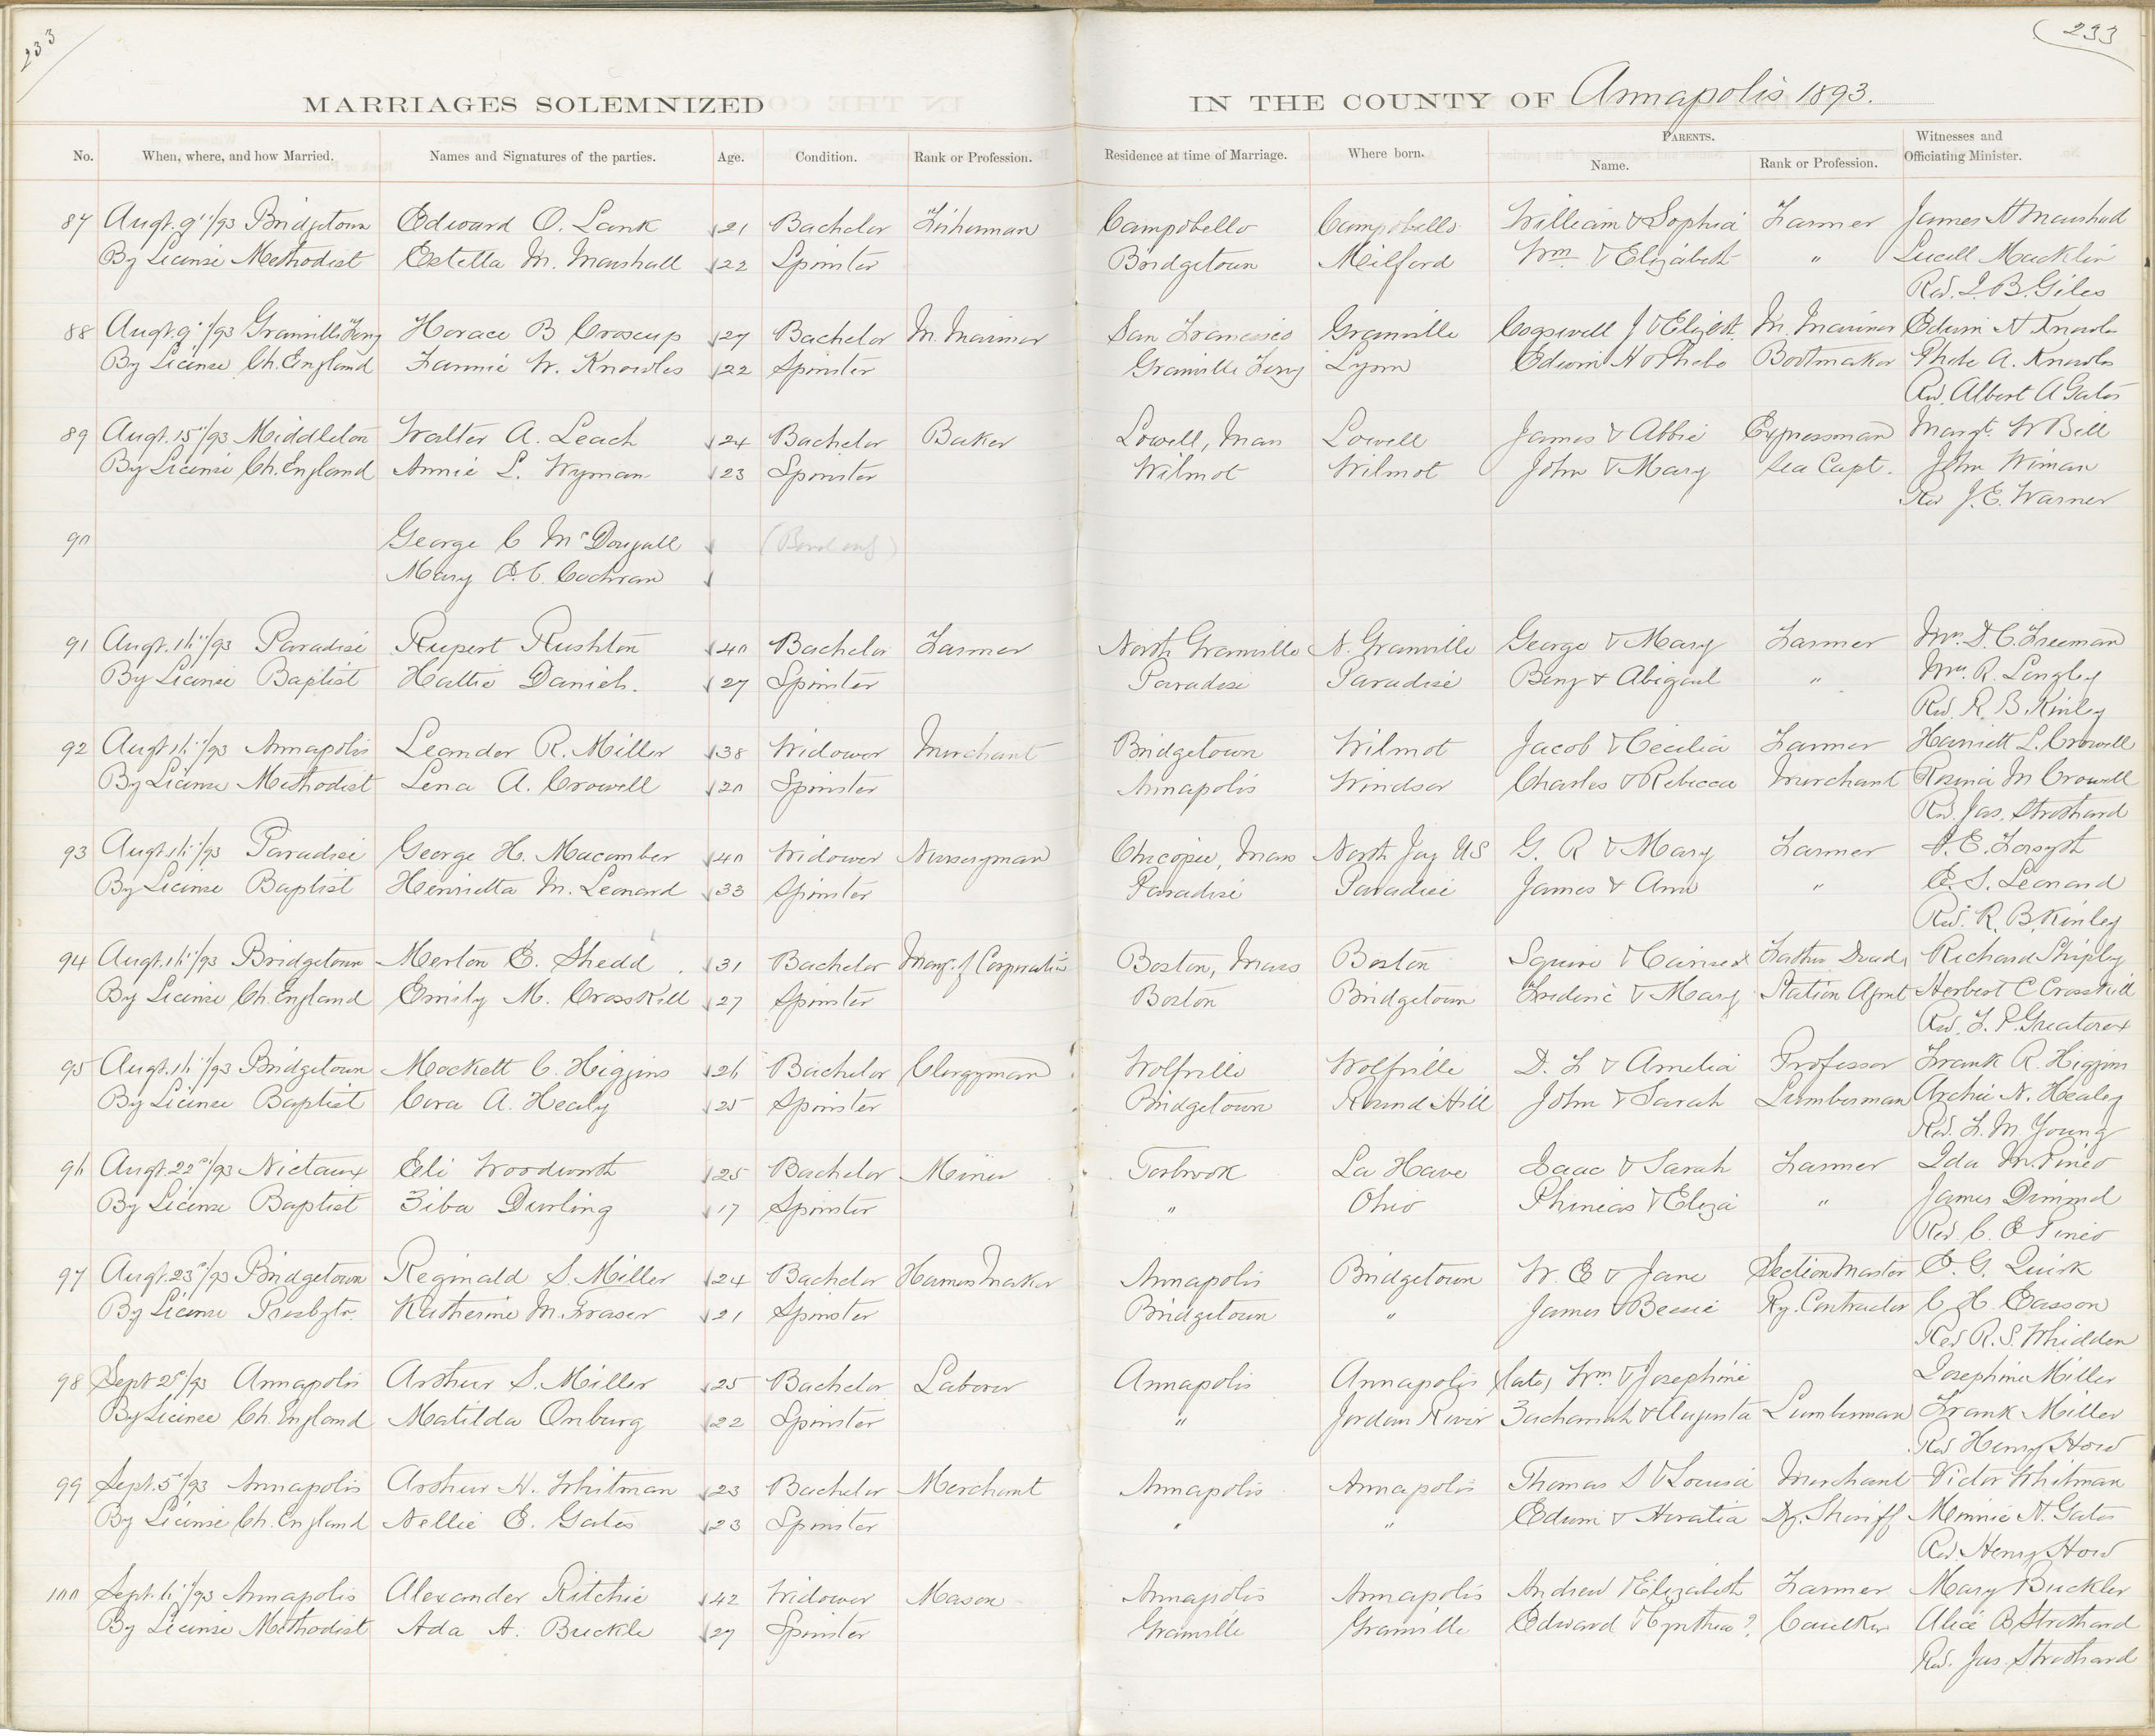 233
233
MARRIAGES SOLEMNIZED IN THE COUNTY OF Annapolis 1893.
No. When, where, and how Married. Names and Signatures of the parties. Age. Condition. Rank or Profession. Residence at time of Marriage. Where born. PARENTS. Name. Rank or Profession. Witnesses and Officiating Minister.
87 Augt. 9"/93 Bridgetown Edward O. Lank 21 Bachelor Fisherman Campobello Campobello William & Sophia Farmer James N Marshall
By License Methodist Estella M. Marshall 22 Spinster Bridgetown Milford Wm. & Elizabeth " Lucill Macklin
Rev. J. B. Giles
88 Augt. 9"/93 Granville Ferry Horace B Croscup 27 Bachelor M. Mariner San Francisco Granville Cogswell J & Elizbt. M. Mariner Edwin H Knowles
By License Ch. England Fannie W. Knowles 22 Spinster Granville Ferry Lynn Edwin H & Phebe Bootmaker Phebe A. Knowles
Rev. Albert A Gates
89 Augt. 15"/93 Middleton Walter A. Leach 24 Bachelor Baker Lowell, Mass Lowell James & Abbie Expressman Margt. W Bill
By License Ch. England Annie L. Wyman 23 Spinster Wilmot Wilmot John & Mary Sea Capt. John Wiman
Rev J. E. Warner
90 George C McDougall
Mary E. C. Cochran
91 Augt. 16"/93 Paradise Rupert Rushton 40 Bachelor Farmer North Granville N. Granville George & Mary Farmer Mrs. D. C. Freeman
By License Baptist Hattie Daniels. 27 Spinster Paradise Paradise Benj & Abigail " Mrs. R. Longley
Rev. R. B. Kinley
92 Augt 16"/93 Annapolis Leander R. Miller 38 Widower Merchant Bridgetown Wilmot Jacob & Cecilia Farmer Harriett L. Crowell
By License Methodist Lena A. Crowell 20 Spinster Annapolis Windsor Charles & Rebecca Merchant Rosina M Crowell
Rev. Jas. Strothard
93 Augt. 16"/93 Paradise George H. Macomber 40 Widower Nurseryman Chicopee, Mass North Jay US G. R & Mary Farmer E. Forsyth
By License Baptist Henrietta M. Leonard 33 Spinster Paradise Paradise James & Ann " E. S. Leonard
Rev. R. B. Kinley
94 Augt. 16"/93 Bridgetown Merton E. Shedd 31 Bachelor Mang. of Corporation Boston, Mass Boston Squire & Father Dead Richard Shipley
By License Ch. England Emily M. CrossKill 27 Spinster Boston Bridgetown Frederic & Mary Station Agent Herbert C CrossKill
Rev. F. P. Greatorex
95 Augt. 16"/93 Bridgetown Mockett C. Higgins 26 Bachelor Clergyman Wolfville Wolfville D. F & Amelia Professor Frank R. Higgins
By License Baptist Cora A. Healy 25 Spinster Bridgetown Round Hill John & Sarah Lumberman Archie N. Healey
Rev. F. M. Young
96 Augt. 22"/93 Nictaux Eli Woodworth 25 Bachelor Miner Torbrook La Have Isaac & Sarah Farmer Ida M. Pineo
By License Baptist Ziba Durling 17 Spinster " Ohio Phineas & Eliza " James Dimond
Rev. C. E Pineo
97 Augt. 23"/93 Bridgetown Reginald S. Miller 24 Bachelor Harness Maker Annapolis Bridgetown W. E & Jane Section Master E. G. Quirk
By License Presbytr. Katherine M. Fraser 21 Spinster Bridgetown " James & Bessie Ry. Contractor C. H. Easson
Rev R. S. Whidden
98 Sept 2"/93 Annapolis Arthur S. Miller 25 Bachelor Laborer Annapolis Annapolis (late) Wm. & Josephine Josephine Miller
By License Ch. England Matilda Onburg 22 Spinster " Jordan River Zachariah & Augusta Lumberman Frank Miller
Rev Henry How
99 Sept. 5"/93 Annapolis Arthur N. Whitman 23 Bachelor Merchant Annapolis Annapolis Thomas S & Louisa Merchant Victor Whitman
By License Ch. England Nellie E. Gates 23 Spinster " " Edwin & Horatia Dy. Sheriff Minnie N. Gates
Rev. Henry How
100 Sept. 6"/93 Annapolis Alexander Ritchie 42 Widower Mason Annapolis Annapolis Andrew & Elizabeth Farmer Mary Buckler
By License Methodist Ada A. Buckle 27 Spinster Granville Granville Edward & Cynthia? Caulker Alice B Strothard
Rev. Jas. Strothard